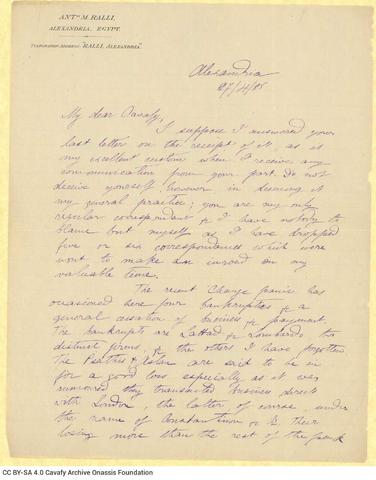 ANTn. M. RALLI,
ALEXANDRIA, EGYPT.
TELEGRAPHIC ADDRESS: "RALLI, ALEXANDRIA"
Alexandria
27/4/85
My dear Cavafy,
I suppose I answered your
last letter on the receipt of it, as is
my excellent custom when I receive any
communication from your part. Do not
deceive yourself however in deeming it
my general practice; you are my only
regular correspondent & I have nobody to
blame but myself as I have dropped
five or six correspondences which were
wont to make an inroad on my
valuable time.
The recent Change panic has
occasioned here four bankruptcies & a
general cessation of business & payment.
The bankrupts are & Lombardo two
distinct firms, & the others I have forgotten
The & are said to be in
for a good loss especially as it was
rumoured they transacted business direct
with London, the latter of course under
the name of Constantinou & Their
losing more than the rest of the
CC BY-SA 4.0 Cavafy Archive Onassis Foundation